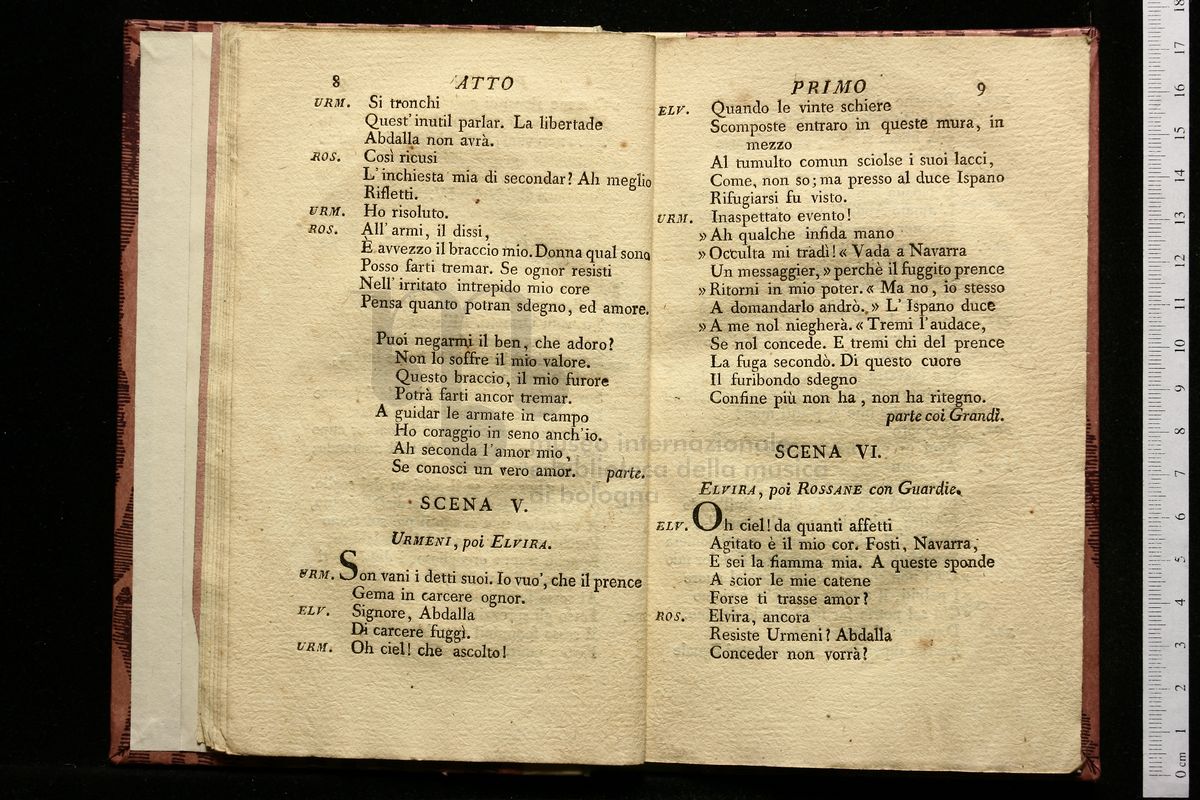 8 ATTO
URM. Si tronchi
Quest' inutil parlar. La libertade
Abdalla non avrà.
ROS. Così ricusi
L'inchiesta mia di secondar? Ah meglio
Rifletti.
URM. Ho risoluto.
ROS. All' armi, il dissi,
È avvezzo il braccio mio. Donna qual sono
Posso farti tremar. Se ognor resisti
Nell' irritato intrepido mio core
Pensa quanto potran sdegno, ed amore.
Puoi negarmi il ben, che adoro?
Non lo soffre il mio valore.
Questo braccio, il mio furore
Potrà farti ancor tremar.
A guidar le armate in campo
Ho coraggio in seno anch'io.
Ah seconda l'amor mio,
Se conosci un vero amor. parte.
SCENA V.
URMENI, poi ELVIRA.
URM. Son vani i detti suoi. Io vuo', che il prence
Gema in carcere ognor.
ELV. Signore, Abdalla
Di carcere fuggì.
URM. Oh ciel! che ascolto!
PRIMO 9
ELV. Quando le vinte schiere
Scomposte entraro in queste mura, in
mezzo
Al tumulto comun sciolse i suoi lacci,
Come, non so; ma presso al duce Ispano
Rifugiarsi fu visto.
URM. Inaspettato evento!
» Ah qualche infida mano
» Occulta mi tradì! « Vada a Navarra
Un messaggier, » perchè il fuggito prence
» Ritorni in mio poter. « Ma no, io stesso
A domandarlo andrò. » L' Ispano duce
» A me nol niegherà. « Tremi l'audace,
Se nol concede. E tremi chi del prence
La fuga secondò. Di questo cuore
Il furibondo sdegno
Confine più non ha, non ha ritegno.
parte coi Grandi.
SCENA VI.
ELVIRA, poi ROSSANE con Guardie.
ELV. Oh ciel! da quanti affetti
Agitato è il mio cor. Fosti, Navarra,
E sei la fiamma mia. A queste sponde
A scior le mie catene
Forse ti trasse amor?
ROS. Elvira, ancora
Resiste Urmeni? Abdalla
Conceder non vorrà?
museo internazionale
e biblioteca della musica
di bologna
0 cm 1 2 3 4 5 6 7 8 9 10 11 12 13 14 15 16 17 18